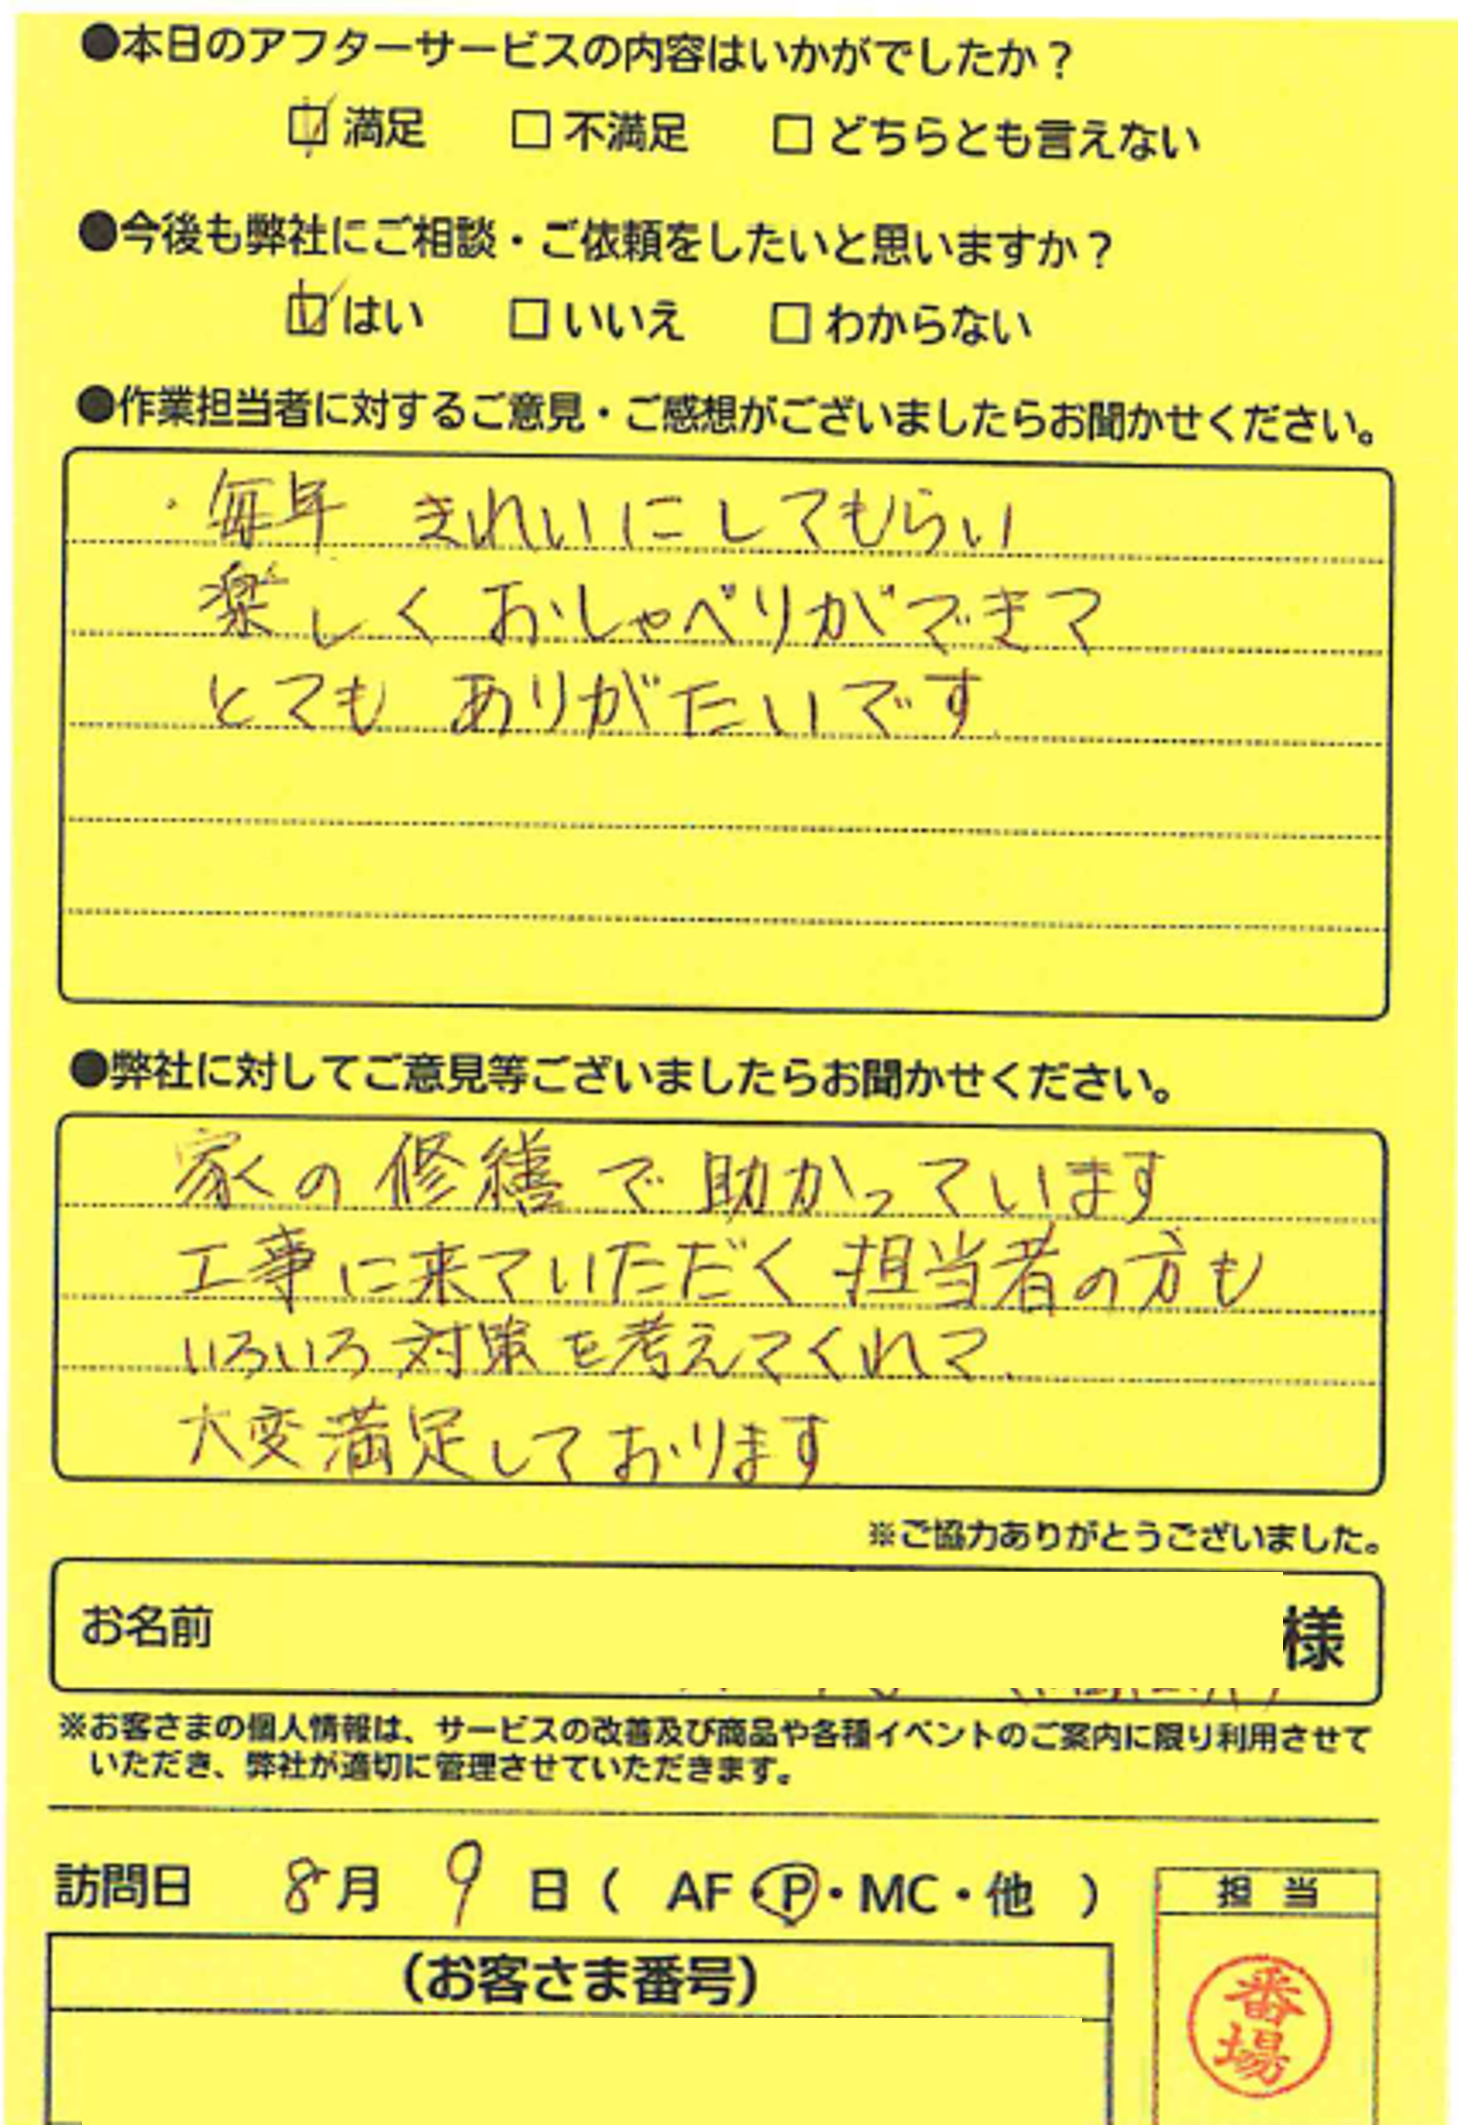 ●本日のアフターサービスの内容はいかがでしたか？
☑満足 □不満足 □どちらとも言えない
●今後も弊社にご相談・ご依頼をしたいと思いますか？
☑はい □いいえ □わからない
●作業担当者に対するご意見・ご感想がございましたらお聞かせください。
・毎年 きれいにしてもらい
楽しく おしゃべりができて
とても ありがたいです
●弊社に対してご意見等ございましたらお聞かせください。
家の修繕で助かっています
工事に来ていただく担当者の方も
いろいろ対策を考えてくれて、
大変満足しております
※ご協力ありがとうございました。
お名前 様
※お客さまの個人情報は、サービスの改善及び商品や各種イベントのご案内に限り利用させて
いただき、弊社が適切に管理させていただきます。
訪問日 8月 9日（ AF・P・MC・他 ）
担当
（お客さま番号）
番場